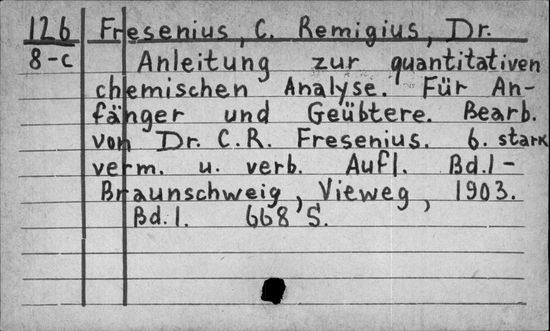 126 Fresenius, C. Remigius, Dr.
8-c Anleitung zur quantitativen
chemischen Analyse. Für An-
fänger und Geübtere. Bearb.
von Dr. C.R. Fresenius. 6. stark
verm. u. verb. Aufl. Bd.1-
Braunschweig, Vieweg, 1903.
Bd.1. 668 S.